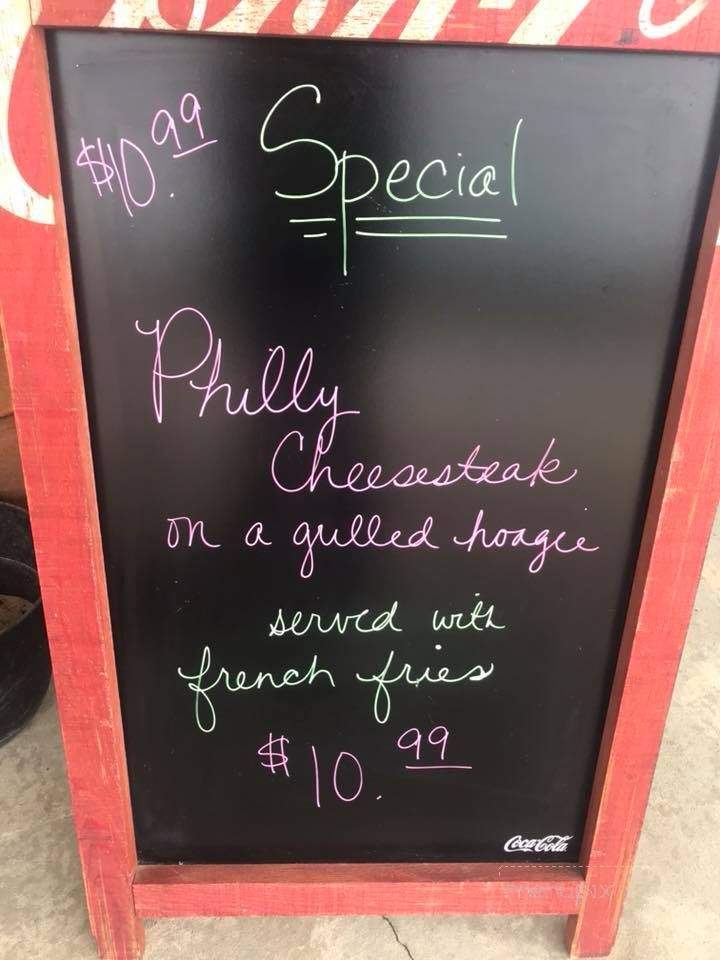 $10.99 Special
Philly
Cheesesteak
on a grilled hoagie
served with
french fries
$10.99
Coca-Cola